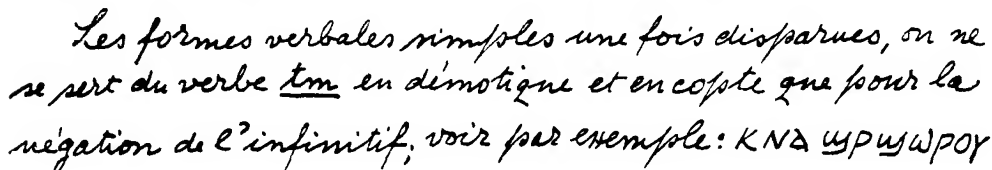 Les formes verbales simples une fois disparues, on ne
se sert du verbe tm en démotique et en copte que pour la
négation de l'infinitif; voir par exemple: ⲕⲛⲁ ϣⲣϣⲱⲣⲟⲩ